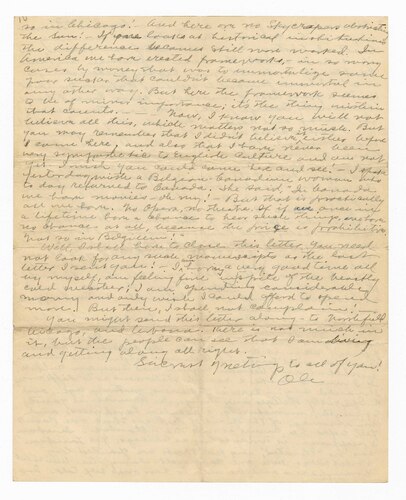 10
as in Chicago! And here are no skyscrapers obstructing
the Sun! - If one looks at historical institutions
the difference becomes still more marked. In
America we have created frameworks - in so many
cases by money that was to immortalize some
poor sock, that couldn't become immortal in
any other way. But here the framework seems
to be of minor importance; its the thing within
that counts. Now, I know you will not
believe all this, which matters not so much. But
you may remember that I didn't believe either before
I came here, and also that I have never been
very sympathetic to English culture and am not
yet. But you should come here and see. I spoke
yesterday with a Belgian Canadian woman who
to-day returned to Canada. She said "In Canada
we have movies - Oh my! - But that is practically
all we have. No Opera, no theatre. If we once in
a lifetime have a chance to hear such things, we have
no chance at all, because the price is prohibitive.
Not so in Belgium!"
Well, I shall have to close this letter. You need
not look for any such manuscripts as the last
letter I sent you. - I have a very good time all
by myself, am feeling fine in spite of the beastly
cold weather, I am spending considerable
money and only wish I could afford to spend
more. But then, I shall not complain!
You might send this letter along to Northfield,
Chicago, and Urbana. There is not much in
it, but the people can see that I am living
and getting along all right.
Sincerest greetings to all of you!
Ole